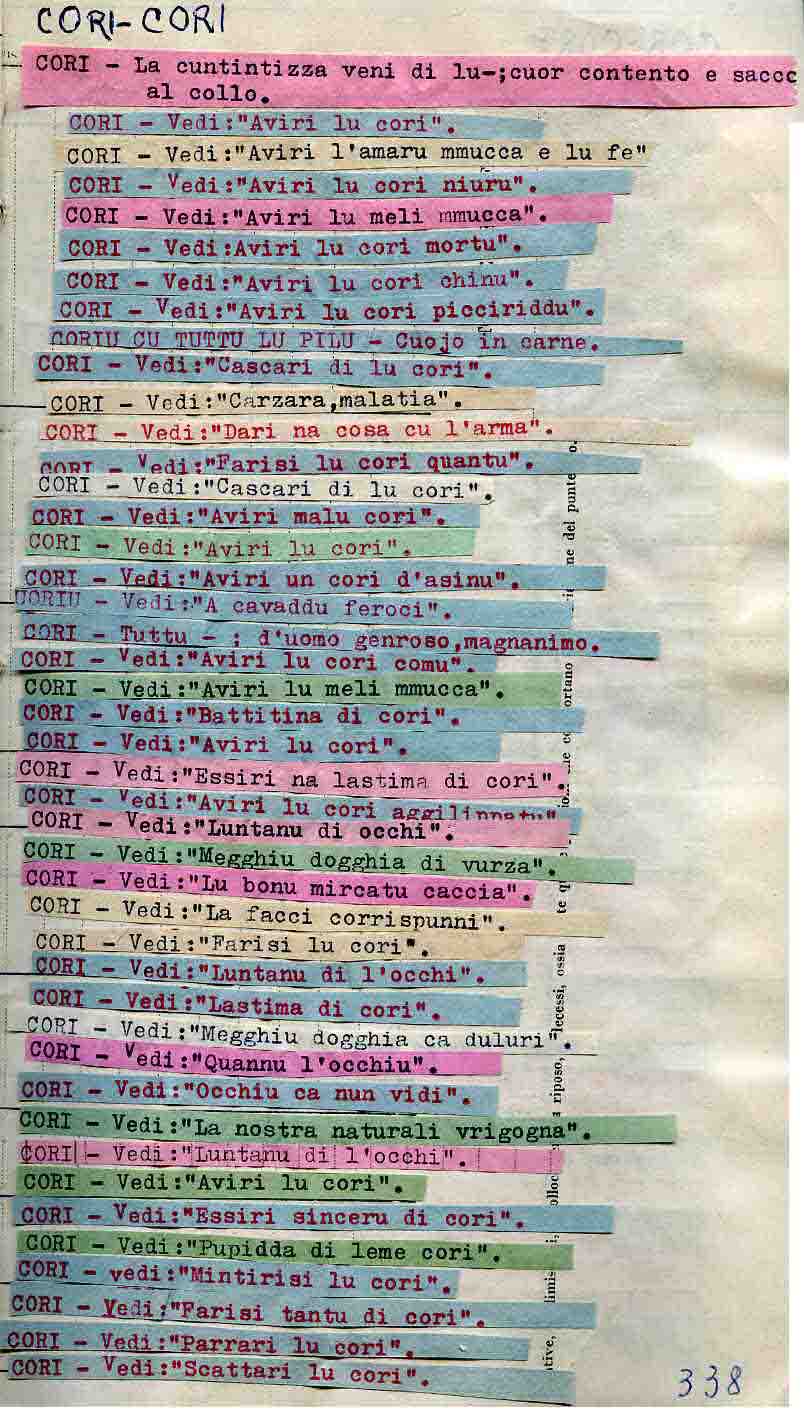 CORI-CORI
CORI - La cuntintizza veni di lu-;cuor contento e sacco
al collo.
CORI - Vedi:"Aviri lu cori".
CORI - Vedi:"Aviri l'amaru mmucca e lu fe"
CORI - Vedi:"Aviri lu cori niuru".
CORI - Vedi:"Aviri lu meli mmucca".
CORI - Vedi:Aviri lu cori mortu".
CORI - Vedi:"Aviri lu cori chinu".
CORI - Vedi:"Aviri lu cori picciriddu".
CORIU CU TUTTU LU PILU - Cuojo in carne.
CORI - Vedi:"Cascari di lu cori".
CORI - Vedi:"Carzara,malatia".
CORI - Vedi:"Dari na cosa cu l'arma".
CORI - Vedi:"Farisi lu cori quantu".
CORI - Vedi:"Cascari di lu cori".
CORI - Vedi:"Aviri malu cori".
CORI - Vedi:"Aviri lu cori".
CORI - Vedi:"Aviri un cori d'asinu".
CORIU - Vedi:"A cavaddu feroci".
CORI - Tuttu - ; d'uomo genroso,magnanimo.
CORI - Vedi:"Aviri lu cori comu".
CORI - Vedi:"Aviri lu meli mmucca".
CORI - Vedi:"Battitina di cori".
CORI - Vedi:"Aviri lu cori".
CORI - Vedi:"Essiri na lastima di cori".
CORI - Vedi:"Aviri lu cori
CORI - Vedi:"Luntanu di occhi".
CORI - Vedi:"Megghiu dogghia di vurza".
CORI - Vedi:"Lu bonu mircatu caccia".
CORI - Vedi:"La facci corrispunni".
CORI - Vedi:"Farisi lu cori".
CORI - Vedi:"Luntanu di l'occhi".
CORI - Vedi:"Lastima di cori".
CORI - Vedi:"Megghiu dogghia ca duluri".
CORI - Vedi:"Quannu l'occhiu".
CORI - Vedi:"Occhiu ca nun vidi".
CORI - Vedi:"La nostra naturali vrigogna".
CORI - Vedi:"Luntanu di l'occhi".
CORI - Vedi:"Aviri lu cori".
CORI - Vedi:"Essiri sinceru di cori".
CORI - Vedi:"Pupidda di leme cori".
CORI - vedi:"Mintirisi lu cori".
CORI - Vedi:"Farisi tantu di cori".
CORI - Vedi:"Parrari lu cori".
CORI - Vedi:"Scattari lu cori".
338